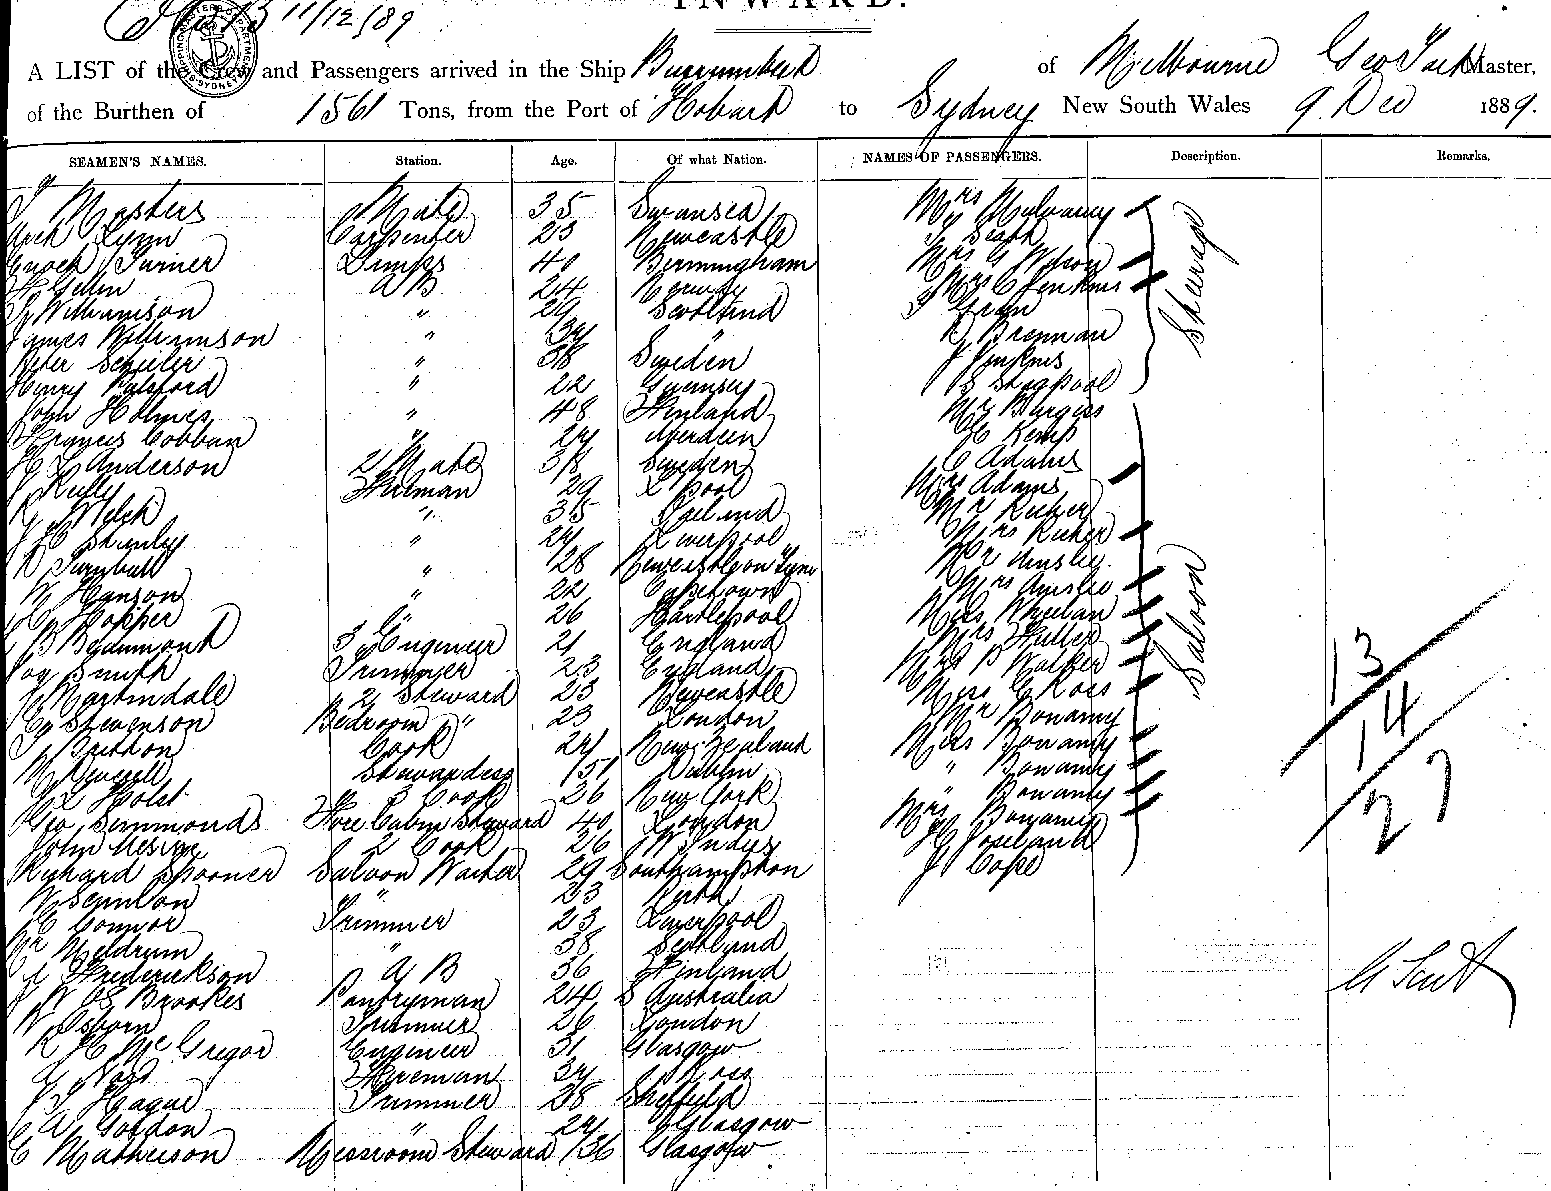 INWARD.
11/12/89
A LIST of the Crew and Passengers arrived in the Ship Burrumbeet of Melbourne Geo Master,
of the Burthen of 1561 Tons, from the Port of Hobart to Sydney New South Wales 9 Dec 1889.
SEAMEN'S NAMES. Station. Age. Of what Nation. NAMES OF PASSENGERS. Description. Remarks.
Masters Mate 35 Swansea Mrs Mulvaney
Lynn Carpenter 23 Newcastle
Enoch Turner Lamps 40 Birmingham Mrs G Wilson
A B 24 Norway Mrs C Jenkins
Williamson " 29 Scotland
James Williamson " 34 " Brennan
Peter " 38 Sweden J Jenkins
Henry Pulsford " 22 Guernsey S Stagpool
Steerage
John Holmes " 48 Finland Mr Burgess
Francis Cobban " 24 Aberdeen C Kemp
Anderson 2 Mate 38 Sweden C Adams
J Kelly Fireman 29 L Pool Mrs Adams
Welch " 35 Ireland Mr
Stanley " 24 Liverpool Mrs
R Turnbull " 28 Newcastle on Tyne Mr Ainslie
W Hanson " 22 Capetown Mrs Ainslie
Hopper " 26 Hartlepool Miss Wheelan
B Beaumont 3 Engineer 21 England Mrs Fuller
Smith Trimmer 23 England Mrs B Walker
Martindale 2 Steward 23 Newcastle Miss C Ross
Stevenson Bedroom " 23 London Mr Bonamy
Button Cook 24 New Zealand Miss Bonamy
Stewardess 51 Dublin " Bonamy
Holst 3 Cook 26 New York " Bonamy
Geo Simmonds Fore Cabin Steward 40 London Mrs Bonamy
John 2 Cook 26 W Indies
Richard Spooner Saloon Waiter 29 Southampton J Cope
Saloon
13
14
27
W " 23 Perth
C Connor Trimmer 23 Liverpool
Meldrum " 38 Scotland
Frederickson A B 36 Finland
Brookes Pantryman 24 S Australia
W Osborn Trimmer 26 London
R McGregor Engineer 31 Glasgow
Fireman 34 Ross
Hague Trimmer 28 Sheffield
A Gordon " 24 Glasgow
C Matheison Messroom Steward 36 Glasgow